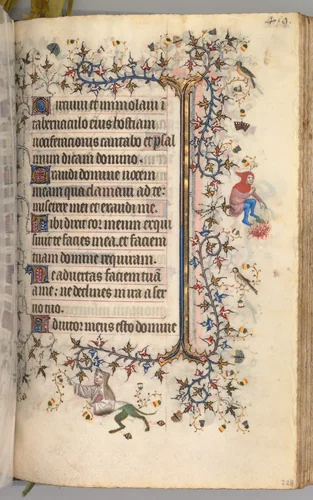 ircuiui et immolaui ĩ
tabernaculo eius hostiam
uociferacionis cantabo et psal
mum dicam domino.
Exaudi domine uocem
meam qua clamaui ad te:
miserere mei et exaudi me.
Tibi dixit cor meum exqui
siuit te facies mea. et faciem
tuam domine requiram.
Ne aduertas faciem tuã
a me: ne declines in ira a ser
uo tuo.
Adiutor meus esto domine